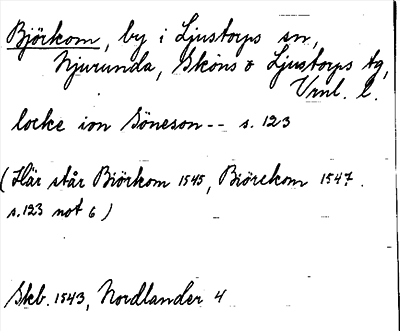 Björkom, by i Ljustorps sn,
Njurunda, Sköns o Ljustorps tg,
Vrnl. l.
locke ion Göneson -- s. 123
(Här står Biörkom 1545, Biörekom 1547.
s. 123 not 6)
Skb. 1543, Nordlander 4